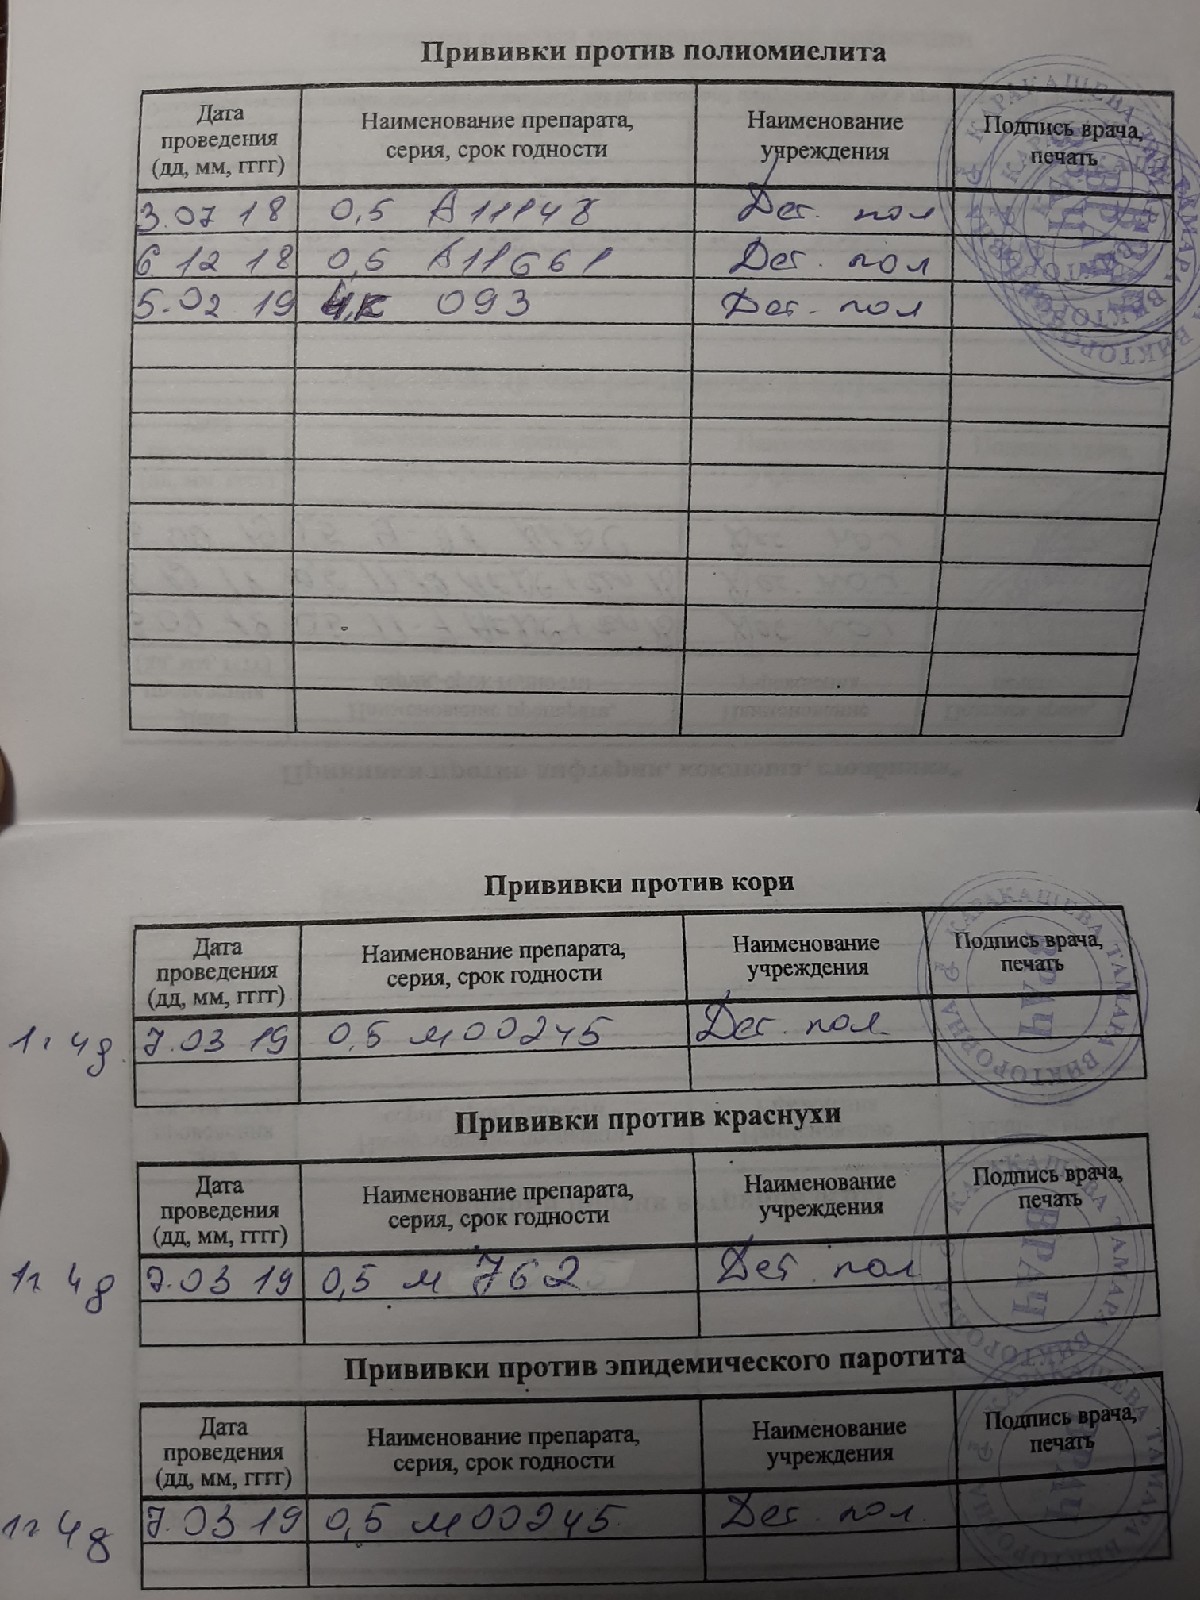 Прививки против полиомиелита
Дата проведения (дд, мм, гггг) Наименование препарата, серия, срок годности Наименование учреждения Подпись врача, печать
3.07 18 0,5 А11148 Дет. пол
6 12 18 0,5 А11661 Дет. пол
5.02 19 093 Дет. пол
КАРАКАШЕВА ТАМАРА ВИКТОРОВНА
ВРАЧ
Прививки против кори
Дата проведения (дд, мм, гггг) Наименование препарата, серия, срок годности Наименование учреждения Подпись врача, печать
1г 4д 7.03 19 0,5 м00245 Дет. пол.
КАРАКАШЕВА ТАМАРА ВИКТОРОВНА
ВРАЧ
Прививки против краснухи
Дата проведения (дд, мм, гггг) Наименование препарата, серия, срок годности Наименование учреждения Подпись врача, печать
1г 4д 7.03 19 0,5 м 762 Дет. пол
КАРАКАШЕВА ТАМАРА ВИКТОРОВНА
ВРАЧ
Прививки против эпидемического паротита
Дата проведения (дд, мм, гггг) Наименование препарата, серия, срок годности Наименование учреждения Подпись врача, печать
1г 4д 7.03 19 0,5 м00245 Дет. пол.
ВРАЧ